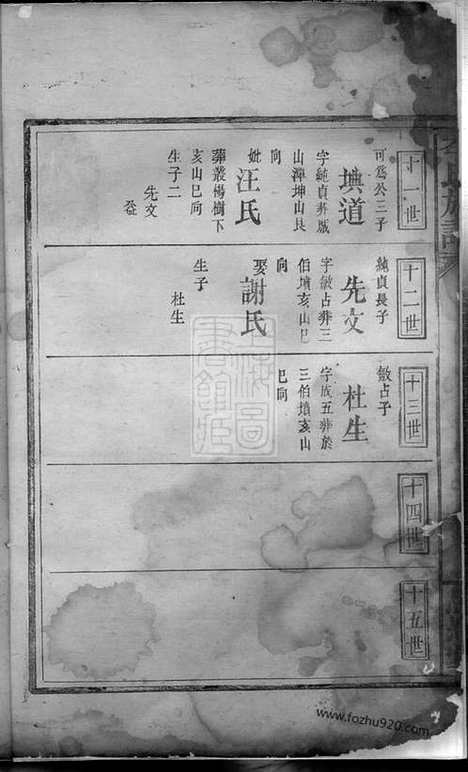 十一世
可為公三子
㙉道
字純貞葬嚴
山潭坤山艮
向
妣汪氏
葬叢楊樹下
亥山巳向
生子二
先文
十二世
純貞長子
先文
字敏占葬三
伯墳亥山巳
向
娶謝氏
生子
杜生
十三世
敏占子
杜生
字成五葬於
三伯墳亥山
巳向
十四世
十五世
上海圖
書館藏
www.fozhu920.com